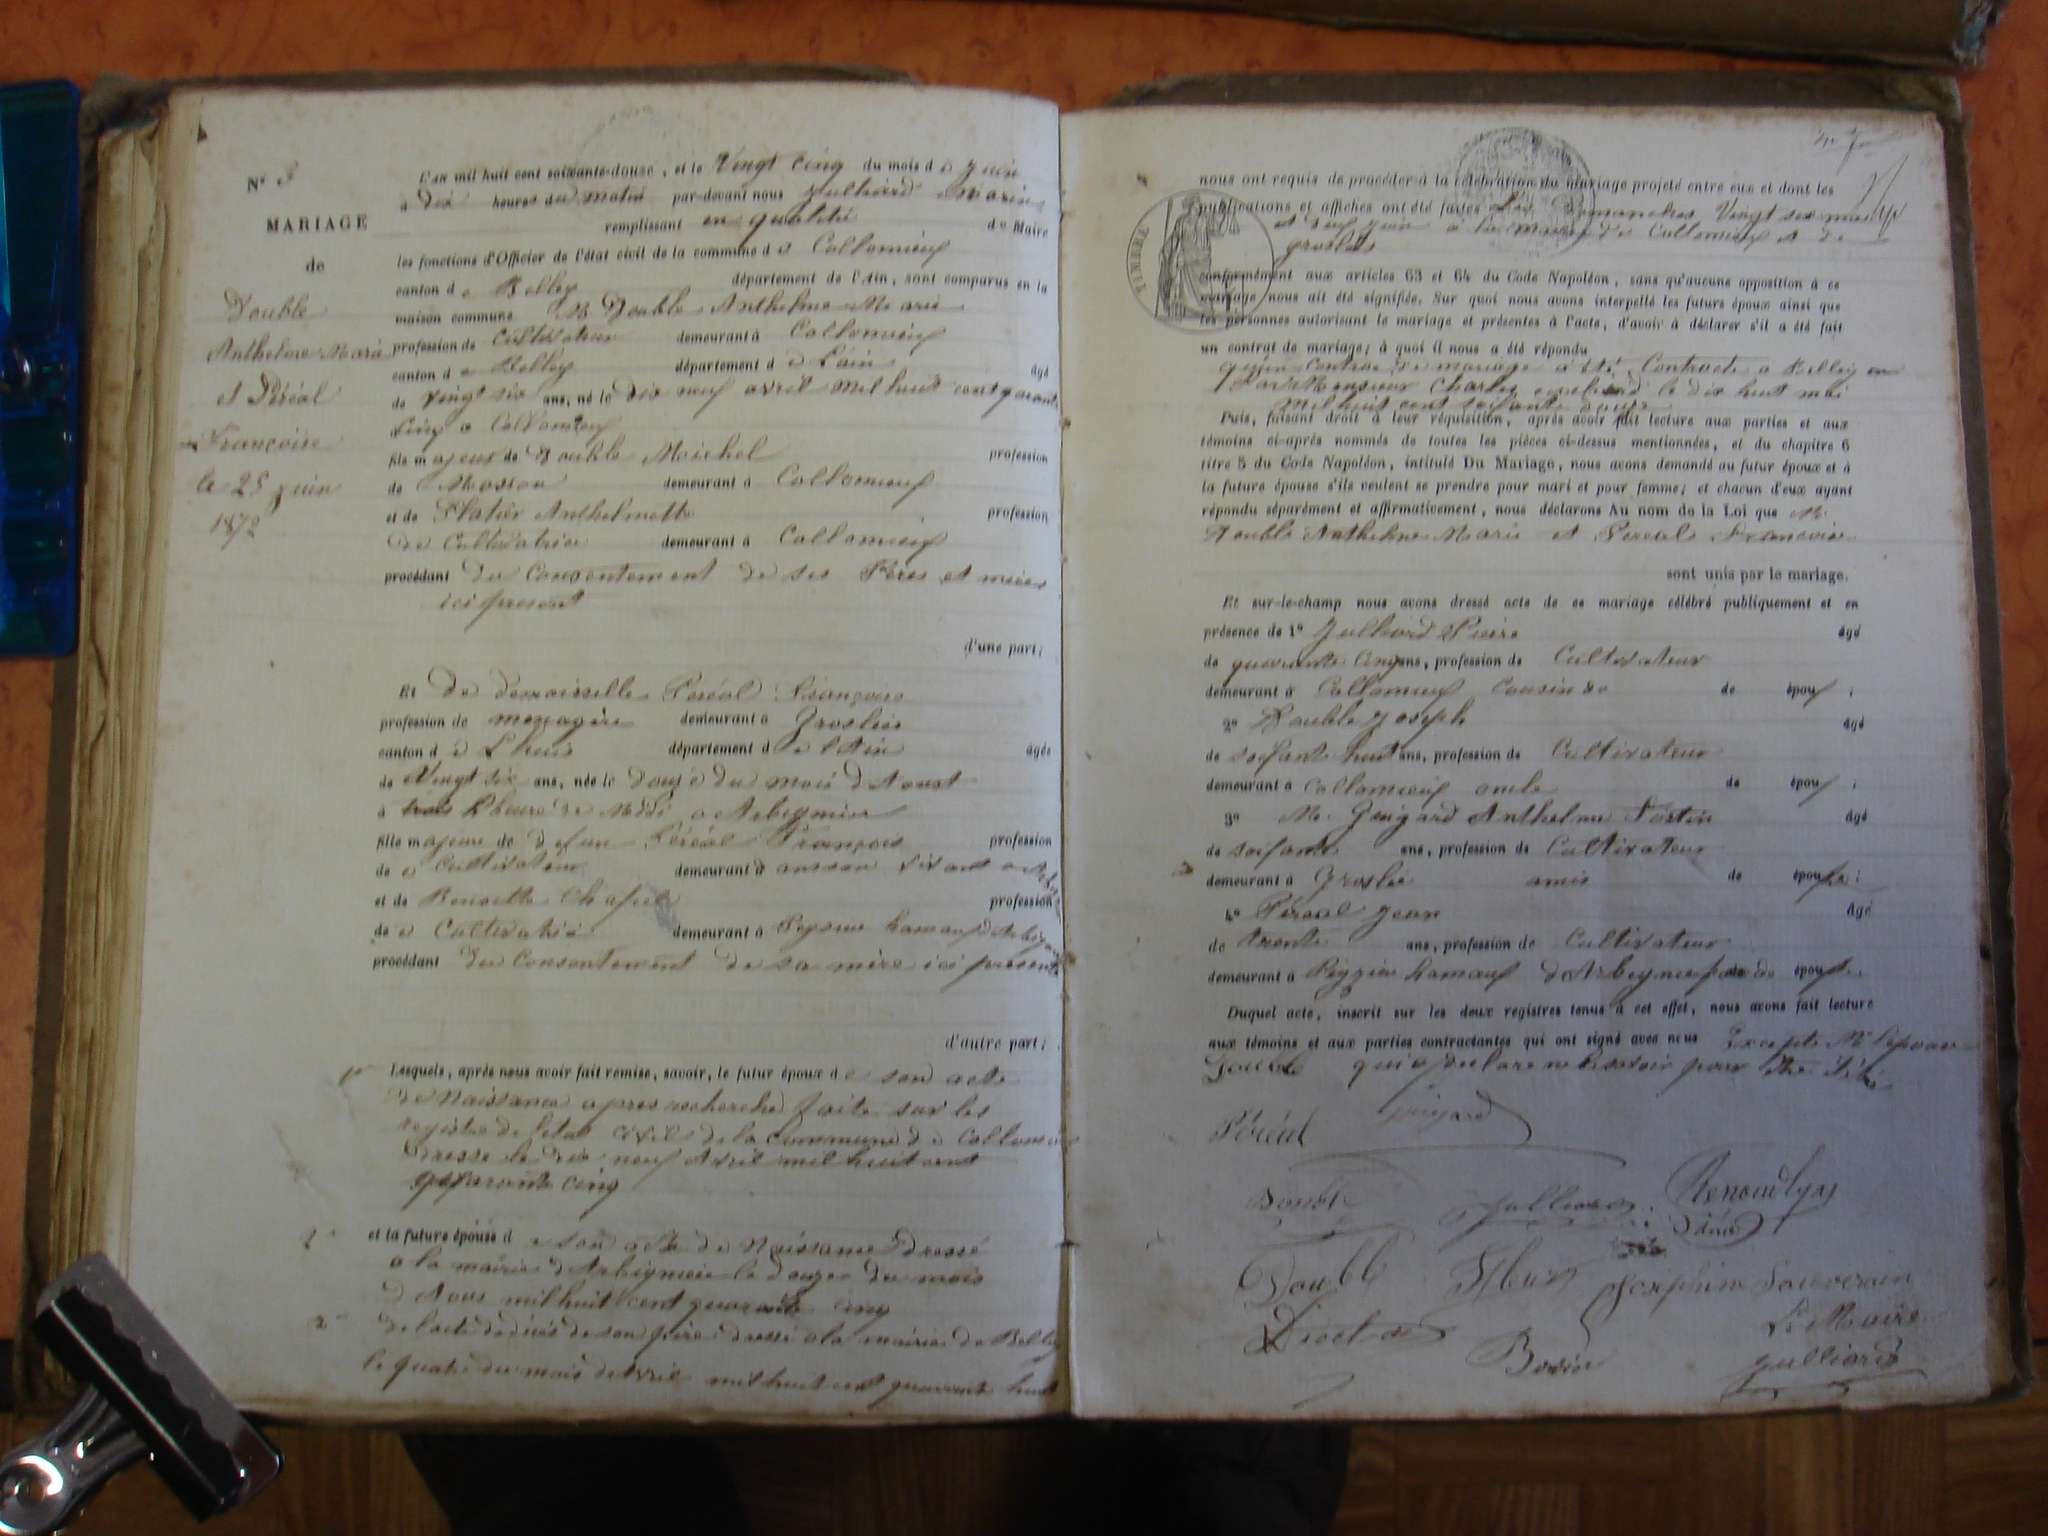 N° 3
MARIAGE
de
Double
Anthelme Marie
et Péréal
Françoise
le 25 juin
1872
L'an mil huit cent soixante-douze, et le Vingt cinq du mois d e juin
à dix heures du matin par-devant nous Julliard Marin
remplissant en qualité de Maire
les fonctions d'Officier de l'état civil de la commune d e Collomieux
canton d e Belley département de l'Ain, sont comparus en la
maison commune Mr Double Anthelme Marie
profession de Cultivateur demeurant à Collomieux
canton d e Belley département d e l'ain âgé
de vingt six ans, né le dix neuf avril mil huit cent quarante
cinq a Collomieux
fils majeur de Double Maichel profession
de Masson demeurant à Collomieux
et de Platier Anthelmette profession
de Cultivatrice demeurant à Collomieux
procédant du Consentement de ses Péres et mères
ici present
d'une part;
Et de demoisselle Péréal Françoise
profession de menagère demeurant à Groslée
canton d e Lhuis département d e l'Ain âgée
de Vingt six ans, née le douze du mois d Aoust
à trois heure de Midi a Arbignieu
fille majeure de d efun Péréal François profession
de e Cultivateur demeurant à anson vivant a
et de Benoitte Chapel profession
de e Cultivatrice demeurant à Peysieu hamaux d'Arbignieu
procédant du Consentement de sa mère ici present
d'autre part;
1° Lesquels, après nous avoir fait remise, savoir, le futur époux d e son acte
de Naissance apres recherche faite sur les
registre de letat civil de la Commune d e Collomieux
dressé le dix neuf Avril mil huit cent
quarante cinq
2° et la future épouse d e son acte de Naissance dressé
a la mairie d Arbignieu le douze du mois
d Aous mil huit cent quarante cinq
de lacte de décès de son père dressé a la mairie de Belley
le quatre du mois davril mil huit cent quarante huit
nous ont requis de procéder à la célébration du mariage projeté entre eux et dont les
publications et affiches ont été faites les Dimanches Vingt six mai
et deux juin a la mairie de Collomieux et de
Groslée
TIMBRE
conformément aux articles 63 et 64 du Code Napoléon, sans qu'aucune opposition à ce
mariage nous ait été signifiée. Sur quoi nous avons interpellé les futurs époux ainsi que
les personnes autorisant le mariage et présentes à l'acte, d'avoir à déclarer s'il a été fait
un contrat de mariage; à quoi il nous a été répondu
qu'un Contrat de mariage a été Contracté a Belley
par Monsieur Charles le dix huit mai
mil huit cent soixante douze
Puis, faisant droit à leur réquisition, après avoir fait lecture aux parties et aux
témoins ci-après nommés de toutes les pièces ci-dessus mentionnées, et du chapitre 6
titre 5 du Code Napoléon, intitulé Du Mariage, nous avons demandé au futur époux et à
la future épouse s'ils veulent se prendre pour mari et pour femme; et chacun d'eux ayant
répondu séparément et affirmativement, nous déclarons Au nom de la Loi que Mr
Double Anthelme Marie et Péréal Françoise
sont unis par le mariage.
Et sur-le-champ nous avons dressé acte de ce mariage célébré publiquement et en
présence de 1° Julliard Pierre âgé
de quarante cinq ans, profession de Cultivateur
demeurant à Collomieux Cousin de époux;
2° Double Joseph âgé
de soixante huit ans, profession de Cultivateur
demeurant à Collomieux oncle de époux;
3° Mr. Guigard Anthelme âgé
de soixante ans, profession de Cultivateur
demeurant à Groslée amis de épouse;
4° Péréal Jean âgé
de trente ans, profession de Cultivateur
demeurant à Peyzieu hamaux d'Arbignieu de épouse.
Duquel acte, inscrit sur les deux registres tenus à cet effet, nous avons fait lecture
aux témoins et aux parties contractantes qui ont signé avec nous Excepté Mr lepoux
Double qui a declaré ne le savoir
Péréal
guigard
Double
Julliard
Double
Joséphine Souverain
Bovier
Le Maire
Julliard